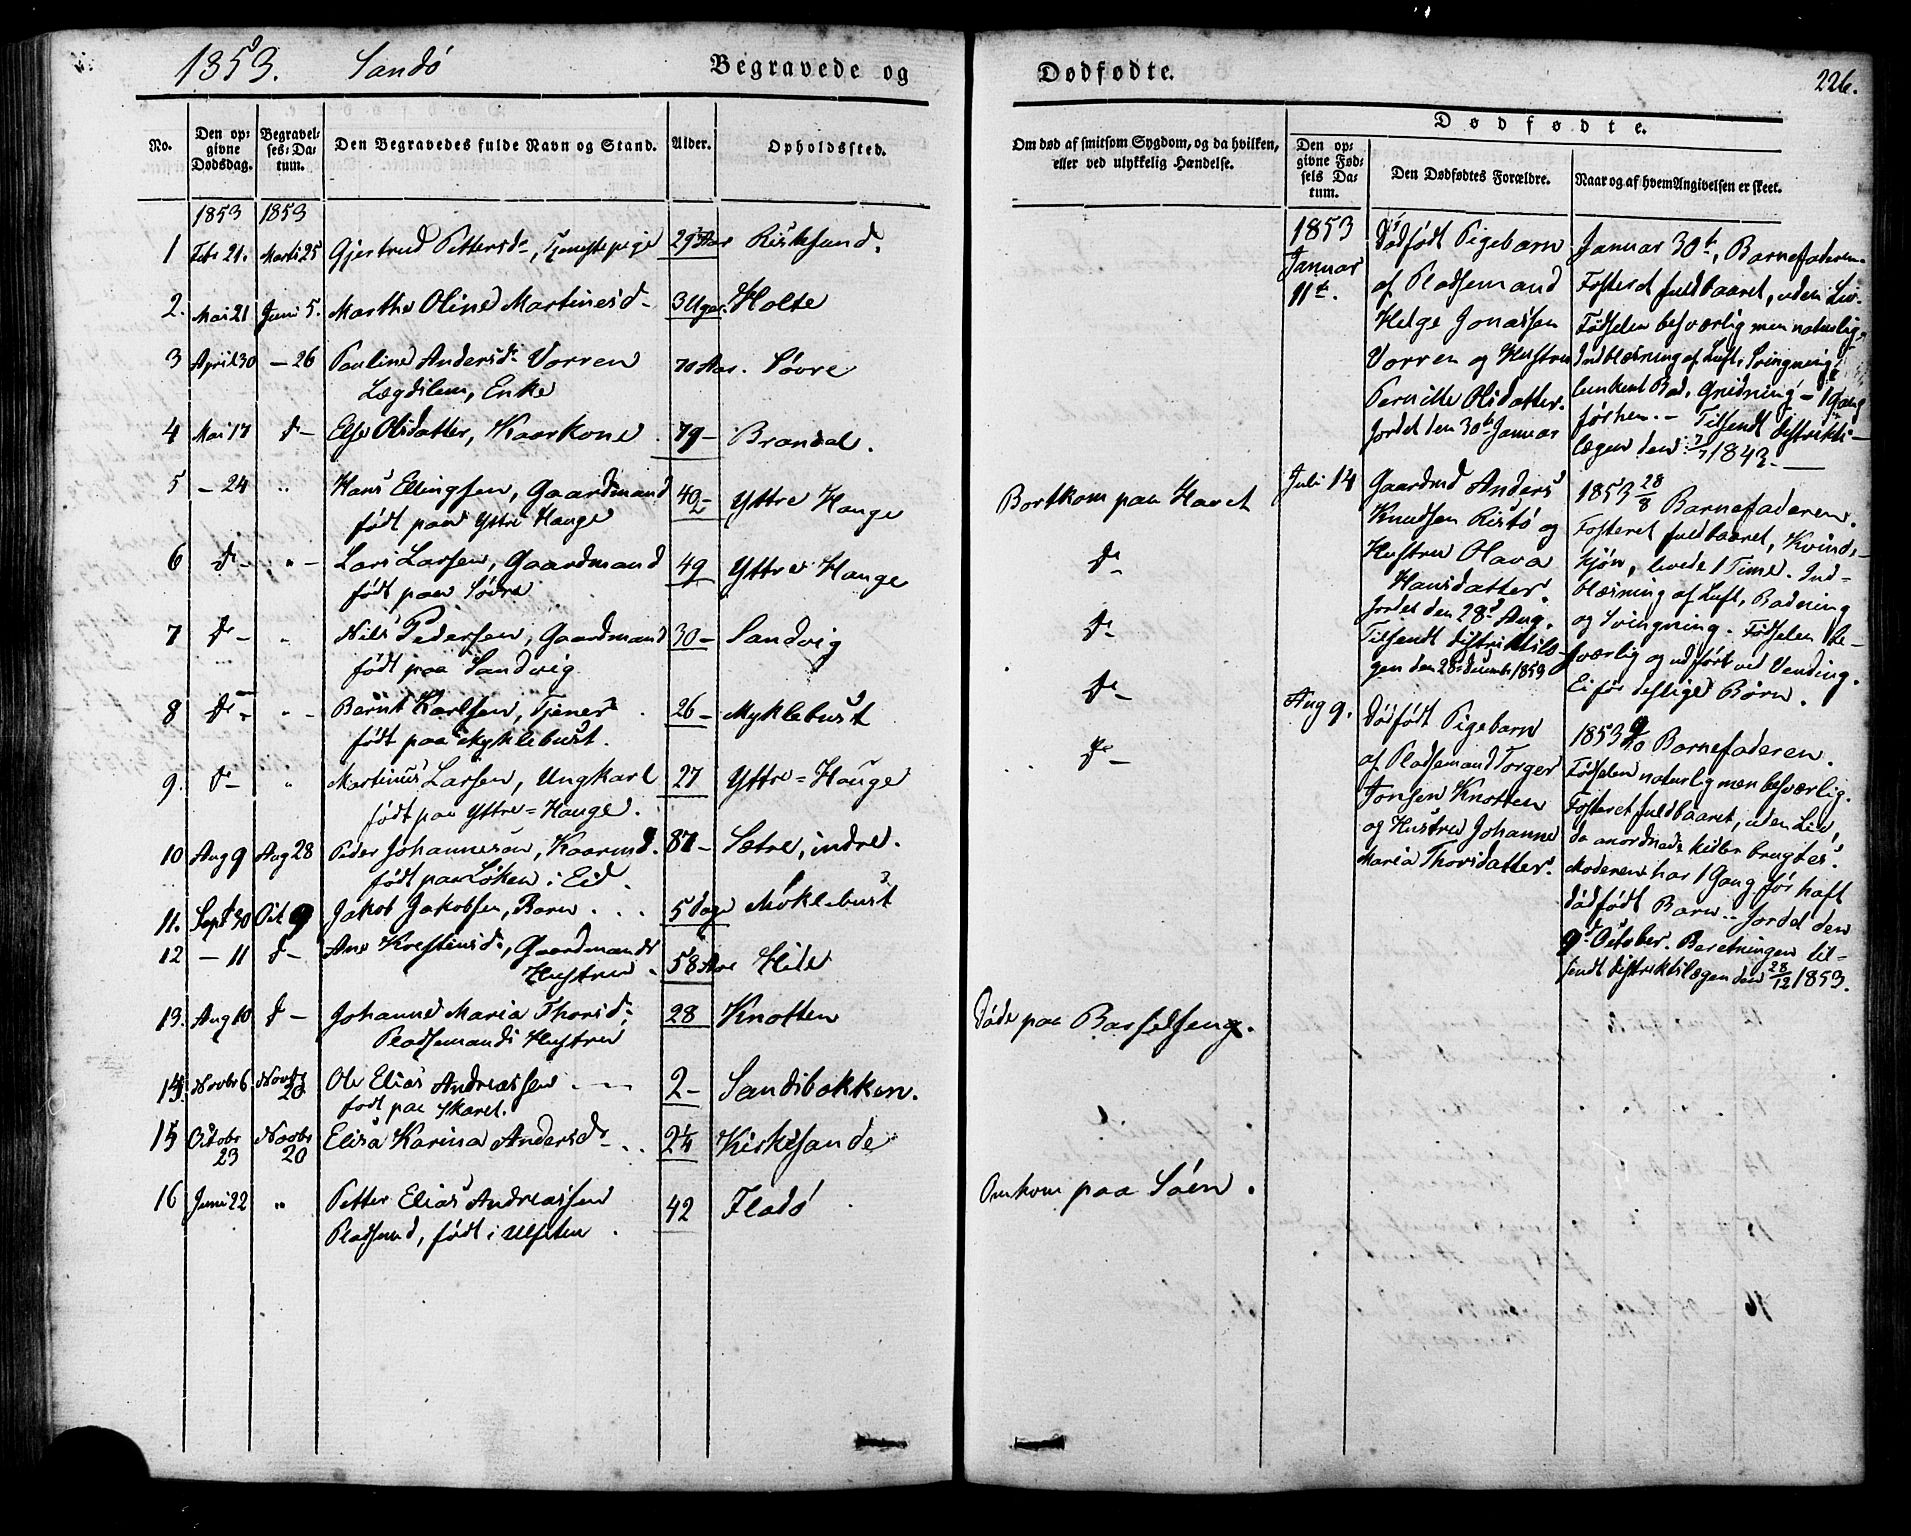 1853. Sandö Begravede og Dødfødte. 226.
No. Den opgivne Dødsdag. Begravelses-Datum. Den Begravedes fulde Navn og Stand. Alder. Opholdssted.
1853 1853
1 Febr 21. Marts 25 Gjertrud Pettersd. Tjenestepige 29 Aar Risksund.
2. Mai 21 Juni 5. Marthe Oline Martinesd. 3 Uger. Holte
3 April 30 – 26 Pauline Andersd. Vorren 70 Aar. Sövre
Lægdslem, Enke
4 Mai 17 do – Else Olsdatter, Kaarkone 79 – Brandal.
5 – 24 " Hans Ellingsen, Gaardmand 40 – Yttre Hauge
født paa Yttre Hauge
6 do – " – Lars Larsen, Gaardmand 49 Yttre Hauge
født paa Sövre
7 do – " Nils Pedersen, Gaardmand 30 – Sandvig
født paa Sandvig
8 do – " – Bernt Karlsen, Tjener 26 – Myklebust
født paa Myklebust.
9. do – " Martinus Larsen, Ungkarl 27 Yttre=Hauge
født paa Yttre=Hauge.
10 Aug 9 Aug 28 Peder Johannesen, Kaarmd. 87 – Sætre, indre.
født paa Løken i Eid.
11. Sept 30 Oct 9 Jakob Jakobsen, Barn . . . 5 dage Möklebust
12 – 11 do – Ane Krestensd., Gaardmands 58 Aar Hide
Hustru
13. Aug 10 do – Johanne Maria Thorsd. 28 Knotten
Pladsemands Hustru
14 Novbr 6 Novbr 20 Ole Elias Andreassen 2 – Sandsbakken.
født paa Skaret.
15 Octobr 23 Novbr 20 Elisa Karina Andersd. . . 2¼ Kirkesande
16 Juni 22 " Petter Elias Andreassen 42 Fladö
Pladsmd, født i Ulfsten.
Om død af smitsom Sygdom, og da hvilken, eller ved ulykkelig Hændelse.
Bortkom paa Havet
do –
do –
do –
do –
Døde paa Barselseng.
Omkom paa Söen.
Dødfødte.
Den opgivne Fødsels Datum. Den Dødfødtes Forældre. Naar og af hvem Angivelsen er skeet.
1853
Januar
11te.
Dødfødt Pigebarn
af Pladsemand
Helge Jonassen
Vorren og Hustru
Pernille Olsdatter.
Jordet den 30te Januar
Januar 30te, Barnefaderen
Fosteret fuldbaaret, uden Liv.
Fødselen besværlig men naturlig.
Indblæsning af Luft, Svingning,
lunkent Bad, Gnidning – 1 Gang
førhen. – Tilsendt Distrikts-
lægen den 1843. –
Juli 14
Gaardmd Anders
Knudsen Ristö og
Hustru Olava
Hansdatter.
Jordet den 28d Aug.
Tilsendt distriktslæ-
gen den 28 decmb. 1853
1853 28/8 Barnefaderen.
Fosteret fuldbaaret, Kvinde-
kjøn, levede 1 Time. Ind-
blæsning af Luft, Badning
og Svingning. Fødselen be-
sværlig og udført ved Vending.
Ei før deslige Børn.
Aug 9.
Dødfødt Pigebarn
af Pladsemand Torger
Jonsen Knotten
og Hustru Johanne
Maria Thorsdatter.
1853 9/10 Barnefaderen.
Fødselen naturlig men besværlig.
Fosteret fuldbaaret, uden Liv,
de anordnede Midler brugtes.
Moderen har 1 Gang før haft
dødfødt Barn. – Jordet den
9d October. Beretningen til-
sendt distriktslægen den 28/12 1853.